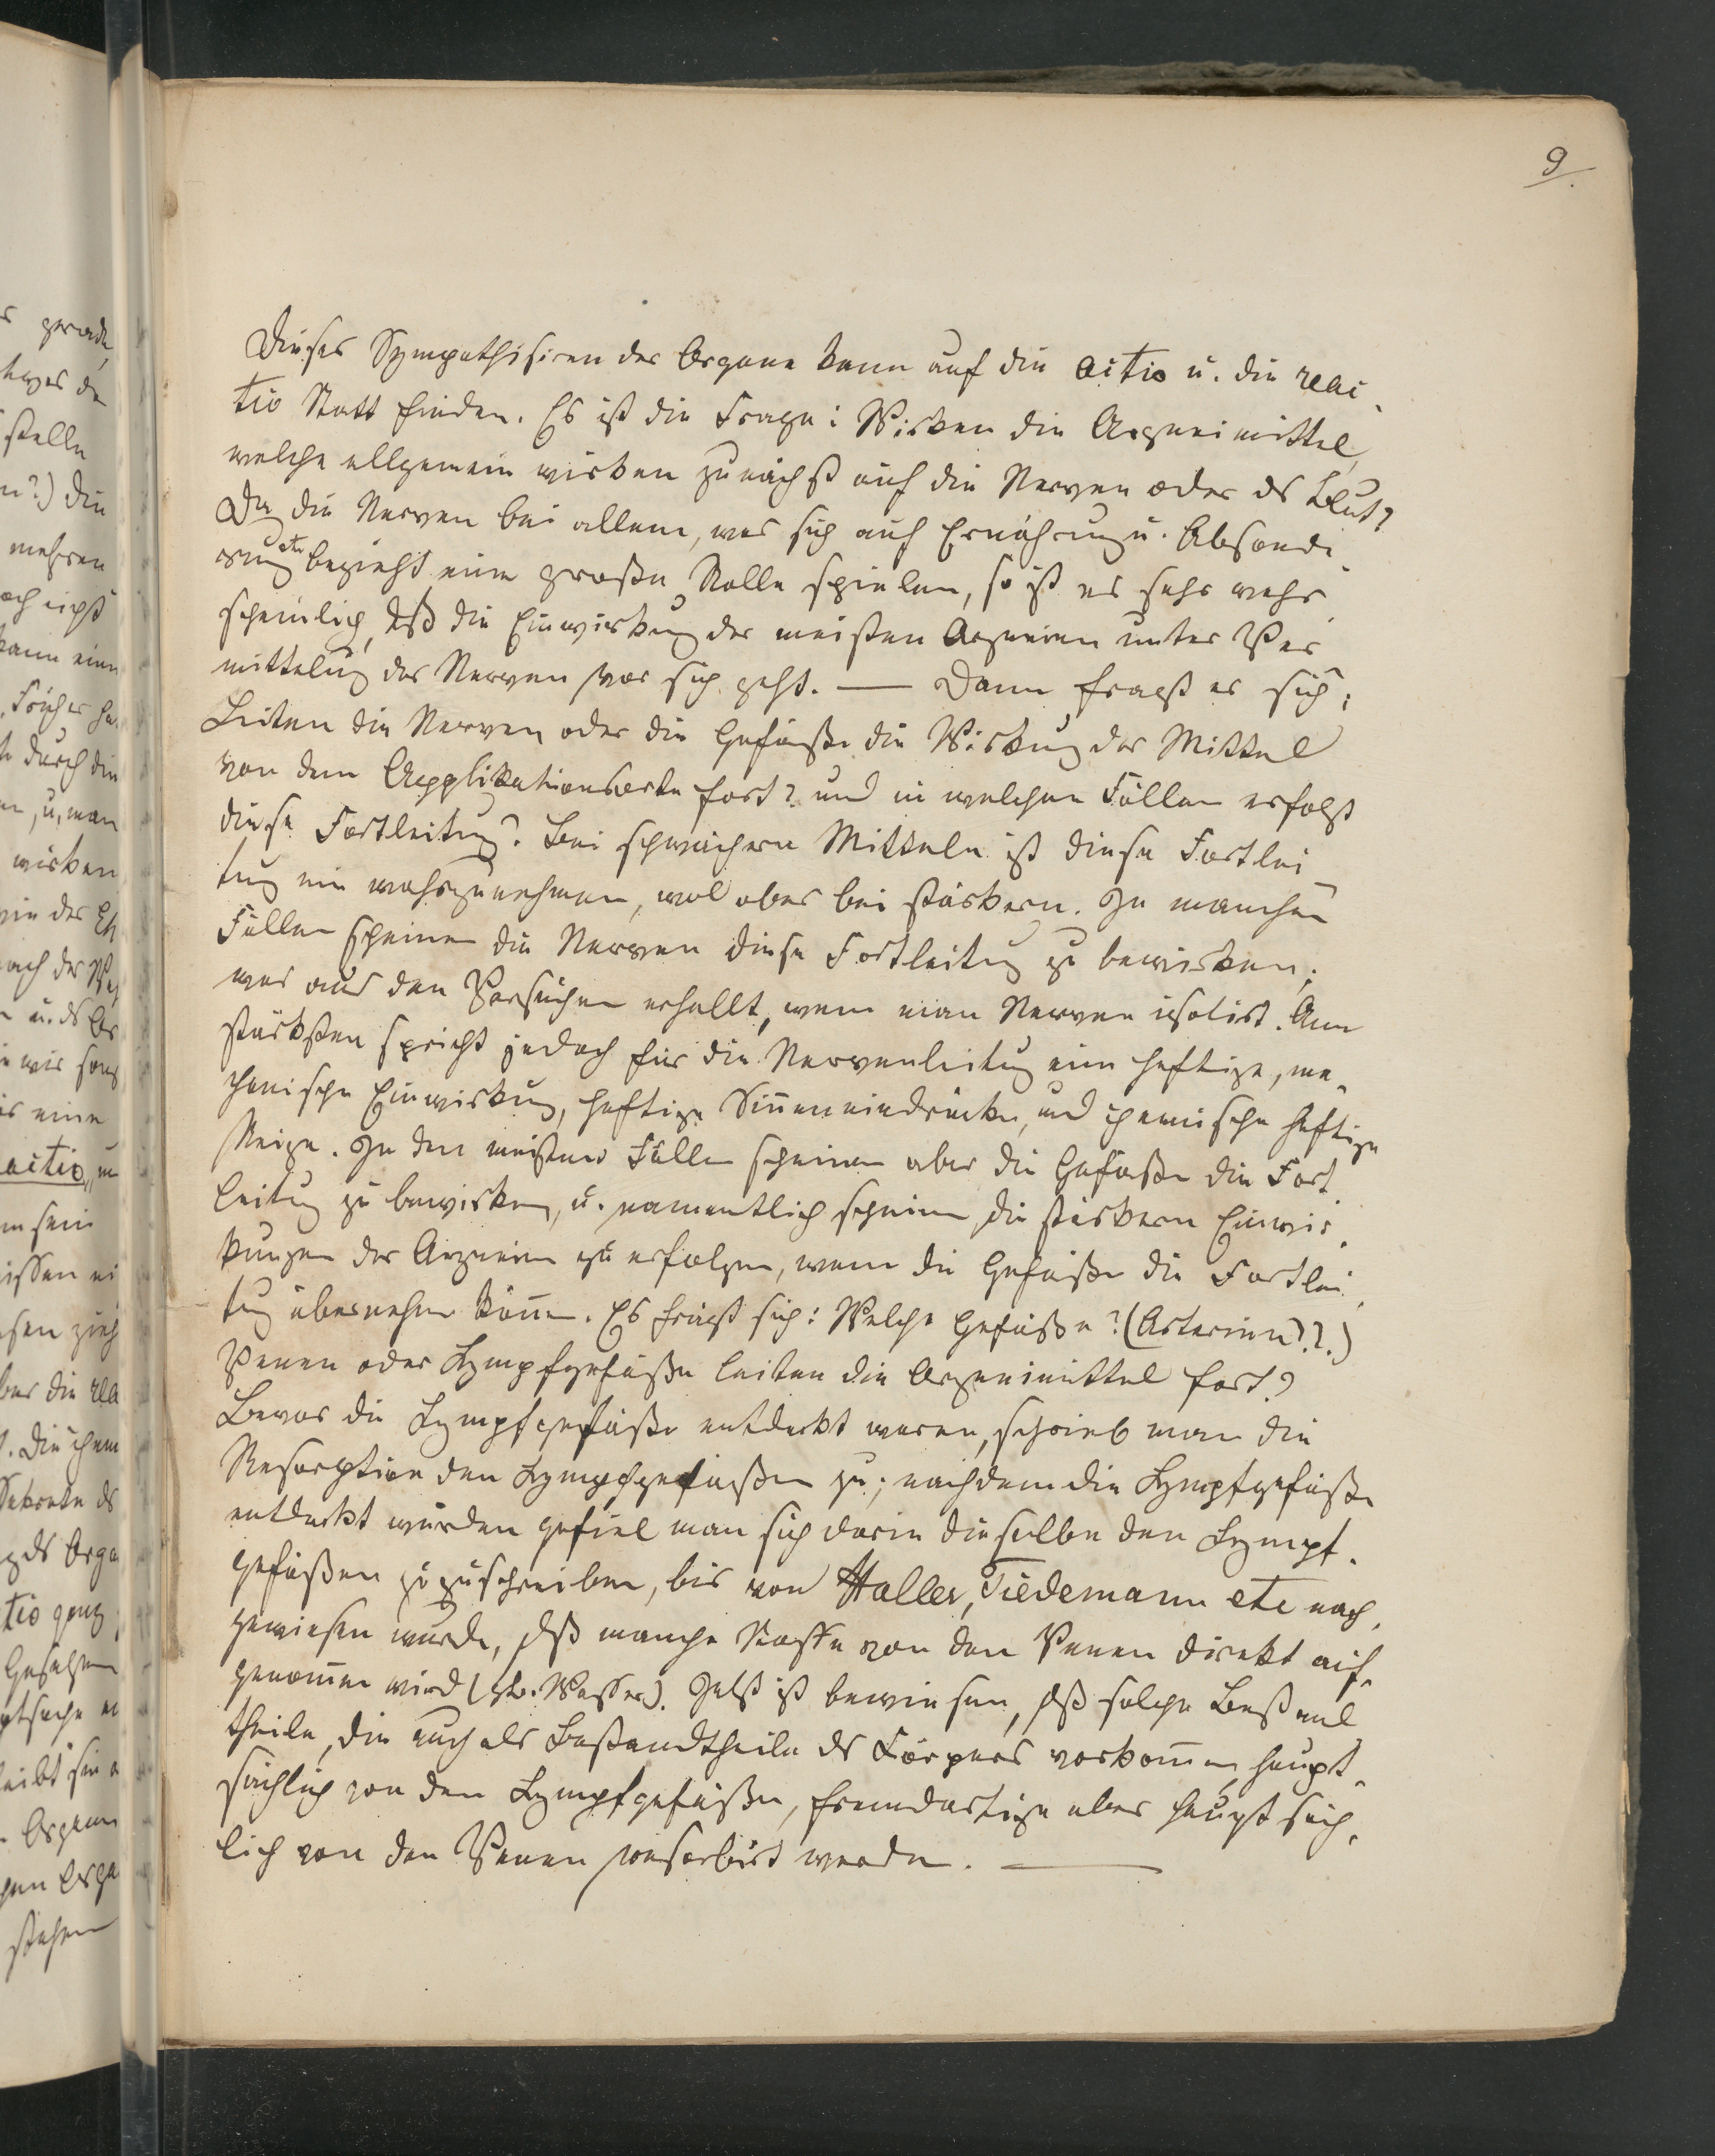 9.
Dieses Sympathisiren der Organe kann auf die actio u. die reac-
tio Statt finden. Es ist die Frage: Wirken die Arzneimittel,
welche allgemein wirken zunächst auf die Nerven oder ds Blut?
Da die Nerven bei allem, was sich auf Ernährung u. Absonde-
rung etc bezieht eine große Rolle spielen, so ist es sehr wahr-
scheinlich, dß die Einwirkung der meisten Arzneien unter Ver-
mittelung der Nerven vor sich geht. — Dann fragt es sich:
Leiten die Nerven oder die Gefäße die Wirkung der Mittel
von dem Applikationsorte fort? und in welchen Fällen erfolgt
diese Fortleitung? Bei schwächern Mitteln ist diese Fortlei-
tung nie wahrzunehmen, wol aber bei stärkern. In manchen
Fällen scheinen die Nerven diese Fortleitung zu bewirken,
was aus den Versuchen erhellt, wenn man Nerven isolirt. Am
stärksten spricht jedoch für die Nervenleitung eine heftige, me-
chanische Einwirkung, heftige Sinneneindrücke, und chemische heftige
Reize. In den meisten Fällen scheinen aber die Gefäße die Fort-
leitung zu bewirken, u. namentlich scheinen die stärkern Einwir-
kungen der Arzneien zu erfolgen, wenn die Gefäße die Fortlei-
tung übernehmen können. Es fragt sich: Welche Gefäße? (Arterien??.)
Venen oder Lympfgefäße leiten die Arzneimittel fort?
Bevor die Lympfgefäße entdeckt waren, schrieb man die
Resorption den Lympfgefäßen zu; nachdem die Lympfgefäße
entdeckt wurden gefiel man sich darin dieselbe den Lympf-
gefäßen zuzuschreiben, bis von Haller, Tiedemann etc nach-
gewiesen wurde, dß manche Stoffe von den Venen direkt auf-
genommen wird (zb. Wasser). Jetzt ist bewiesen, dß solche Bestand-
theile, die auch als Bestandtheile ds Körpers vorkommen, haupt-
sächlich von den Lympfgefäßen, fremdartige aber hauptsäch-
lich von den Venen resorbirt werden. —